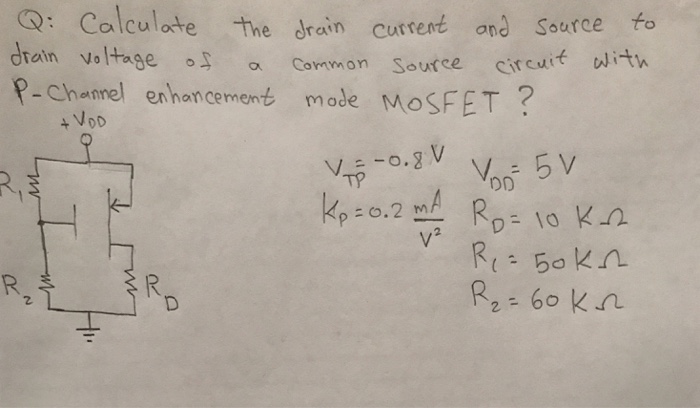 Q: Calculate the drain current and source to
drain voltage of a common source circuit with
P-Channel enhancement mode MOSFET ?
+VDD
R1
R2
RD
VTP = -0.8 V
Kp = 0.2 mA/V²
VDD = 5 V
RD = 10 KΩ
R1 = 50 KΩ
R2 = 60 KΩ